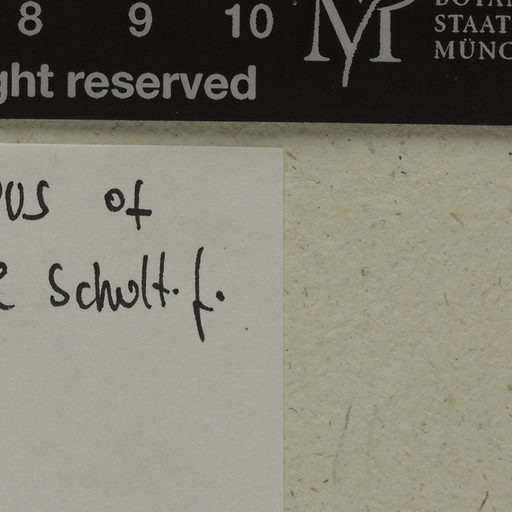 8 9 10
ght reserved
M
BOTA
STAAT
MÜNC
of
Schult. f.